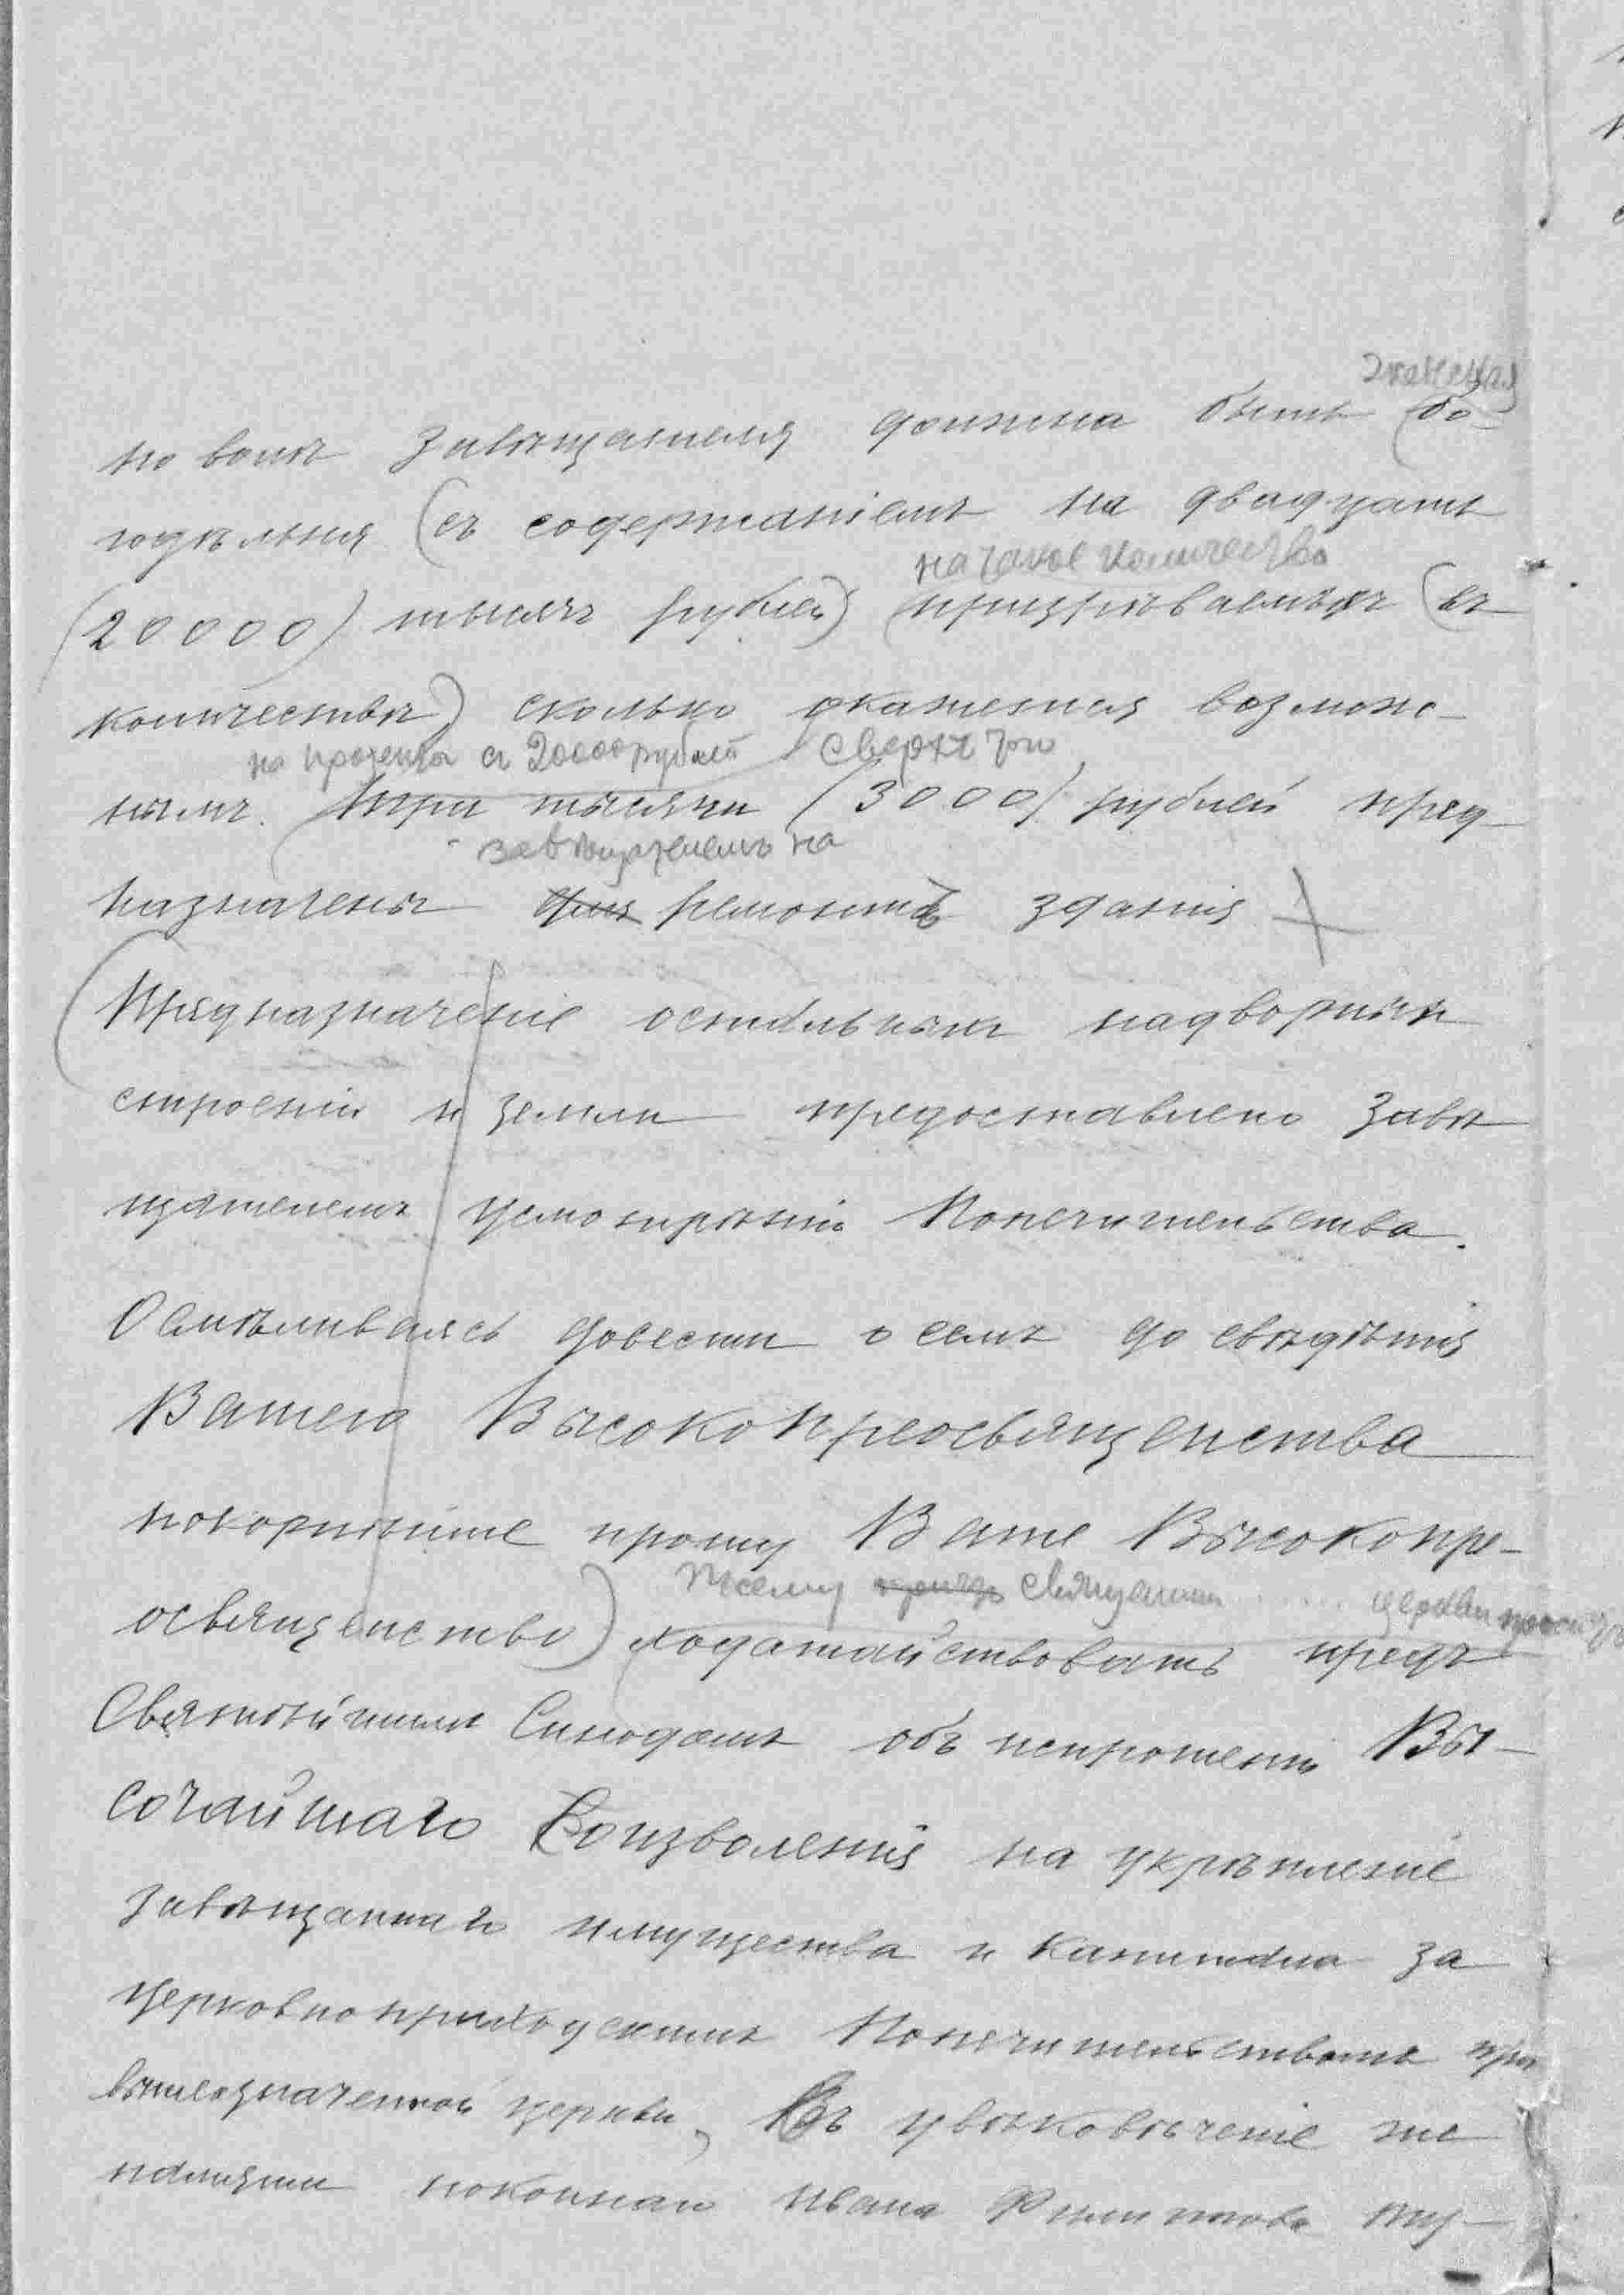 женская
по волѣ завѣщателя должна быть (бо-
годѣльня (съ содержаніемъ на двадцать
на такое количество
(20000) тысячъ рублей) (призрѣваемыхъ (въ
количествѣ) сколько окажется возмож-
на проценты съ 20000 рублей Сверхъ того
нымъ. (три тысячи (3000) рублей пред-
завѣщателемъ на
назначены для ремонтъ зданія
(Предназначеніе остальныхъ надворныхъ
строеній и земли предоставлено завѣ
щателемъ усмотрѣнію Попечительства.
Осмѣливаясь довести о семъ до свѣдѣнія
Вашего Высокопреосвященства
покорнѣйше прошу Ваше Высокопре-
Посему священник ..... церкви просит
освященство) ходатайствовать предъ
Святѣйшимъ Синодомъ объ испрошеніи Вы-
сочайшаго Соизволенія на укрѣпленіе
завѣщаннаго имущества и капитала за
церковноприходскимъ Попечительствомъ при
вышеозначенной церкви, Въ увѣковѣченіе же
памяти покойнаго Ивана Филиппова